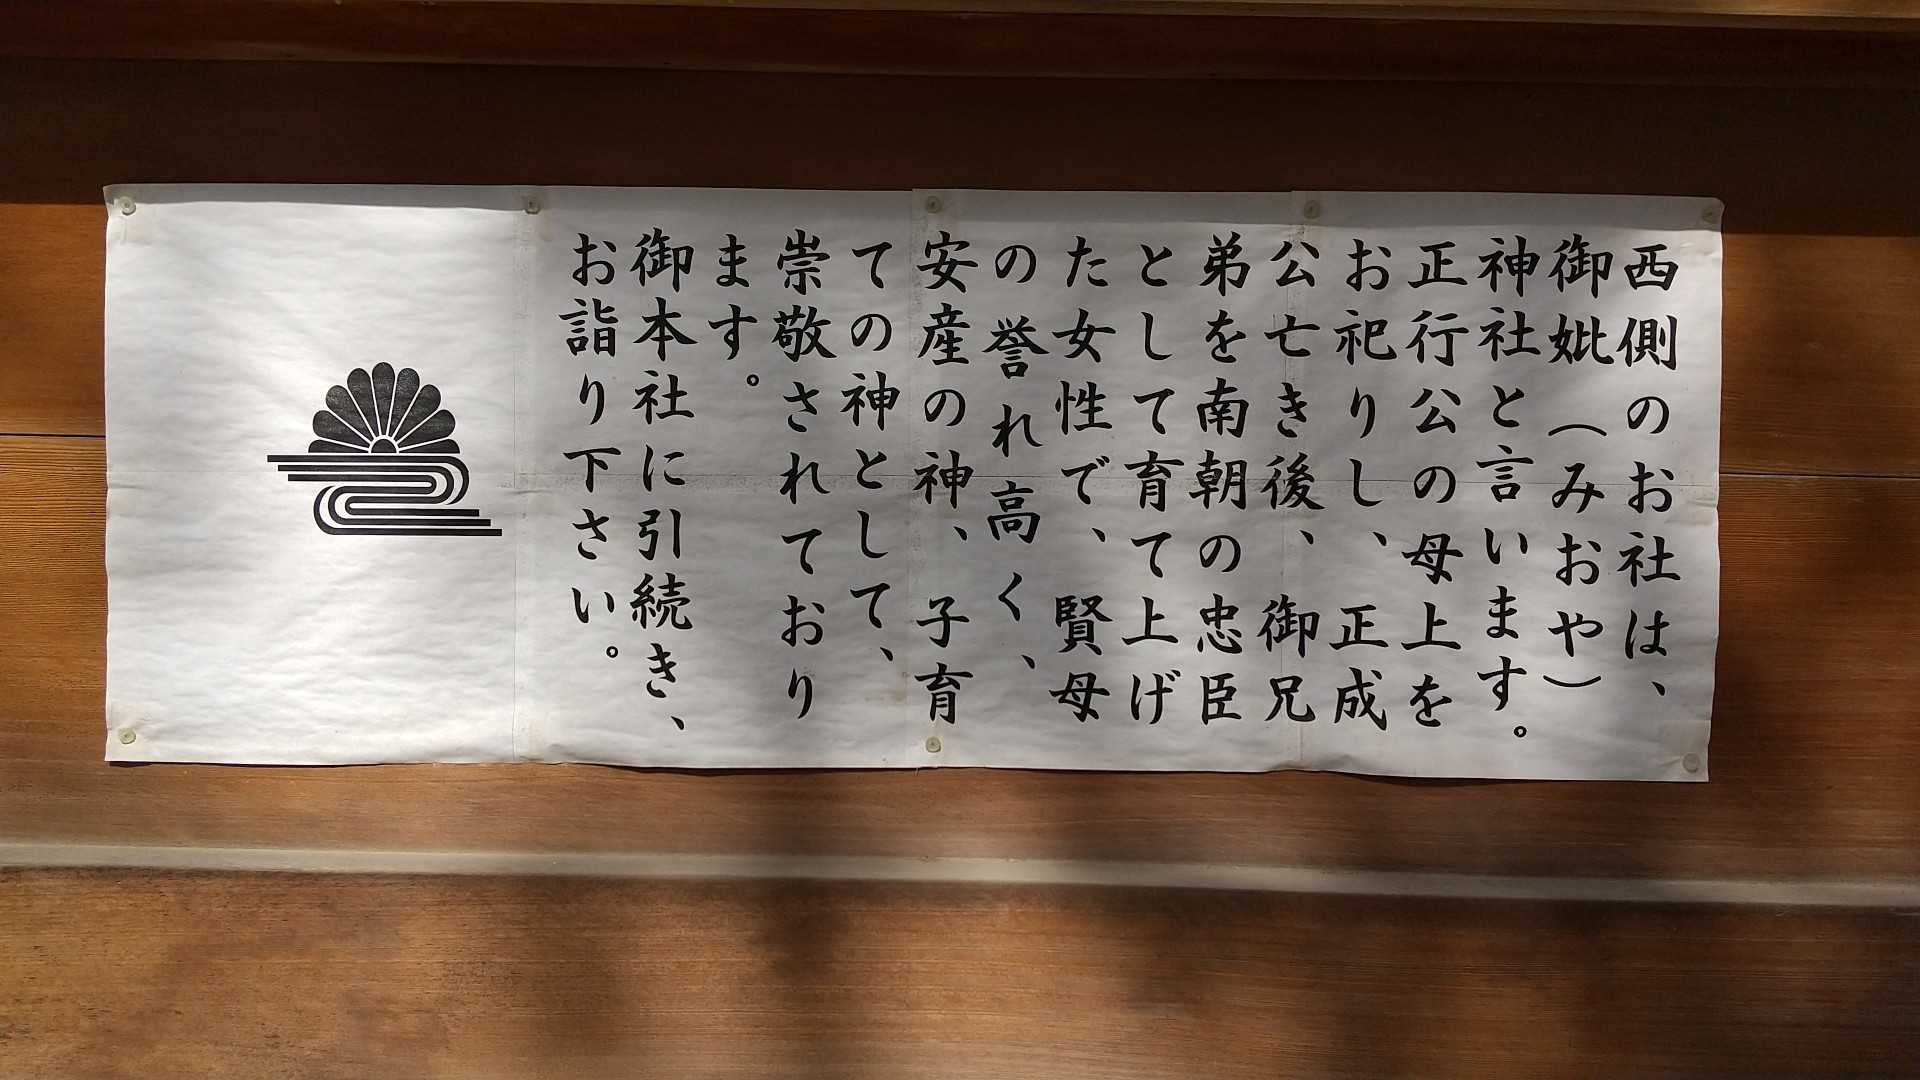 西側のお社は、
御妣（みおや）
神社と言います。
正行公の母上を
お祀りし、正成
公亡き後、御兄
弟を南朝の忠臣
として育て上げ
た女性で、賢母
の誉れ高く、
安産の神、子育
ての神として、
崇敬されており
ます。
御本社に引続き、
お詣り下さい。